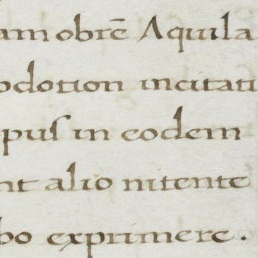 am obrē Aquila
odotion incitati
pus in eodem
nt alio nitente
bo exprimere.